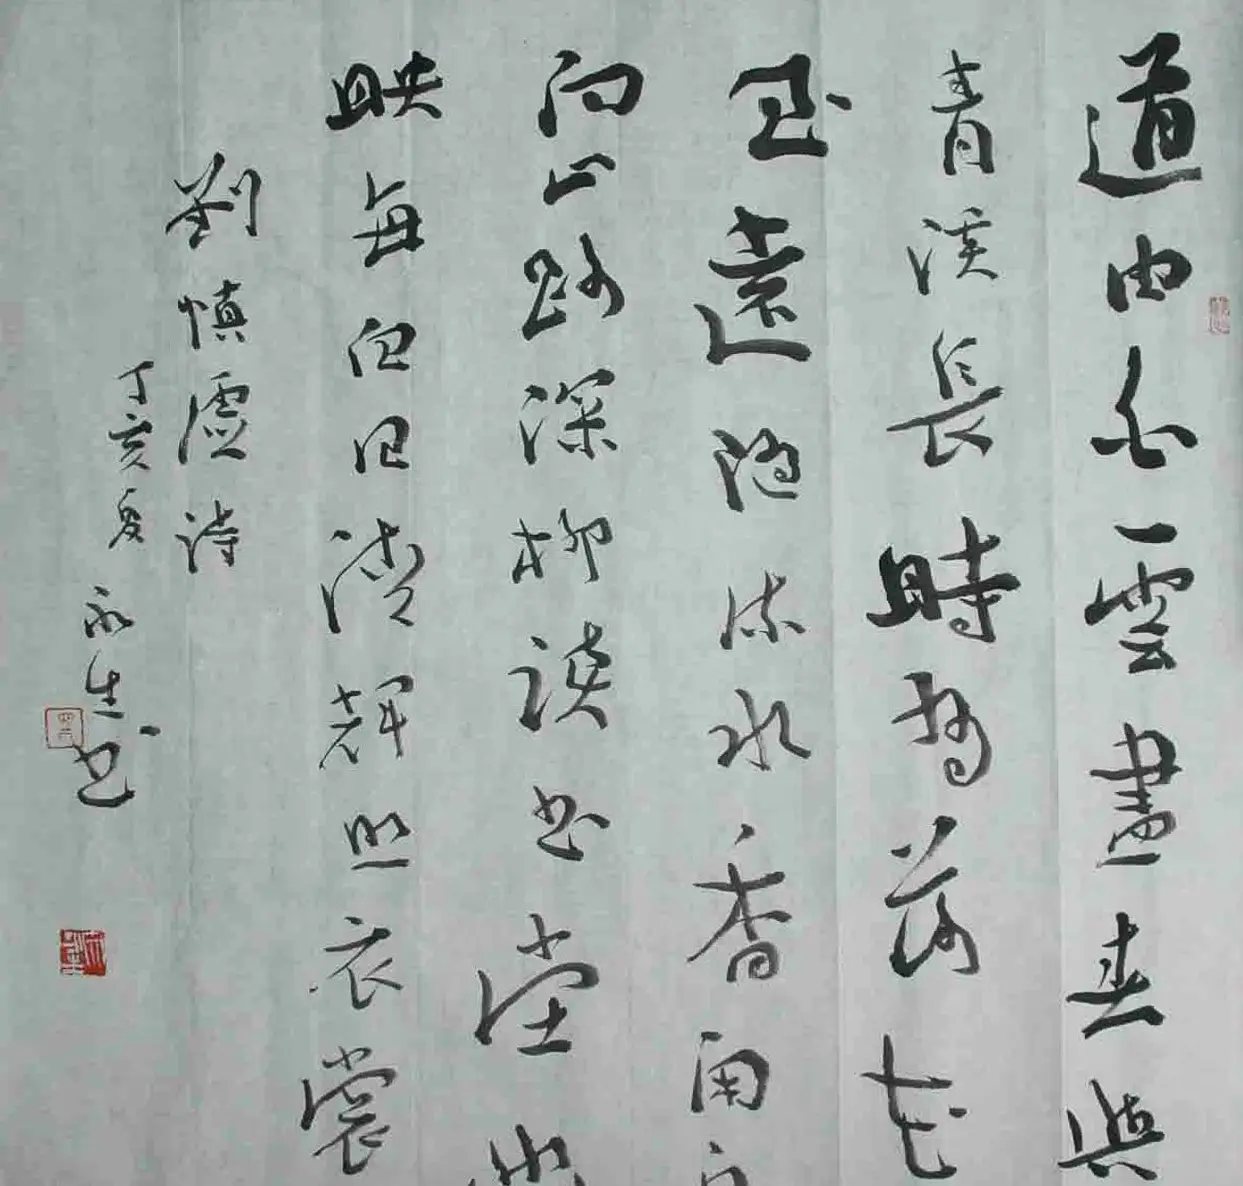 道由白雲盡春與
青溪長時有落花
至遠隨流水香閑
向山路深柳讀書堂幽
映每白日清輝照衣裳
劉慎虛詩
丁亥夏永生書